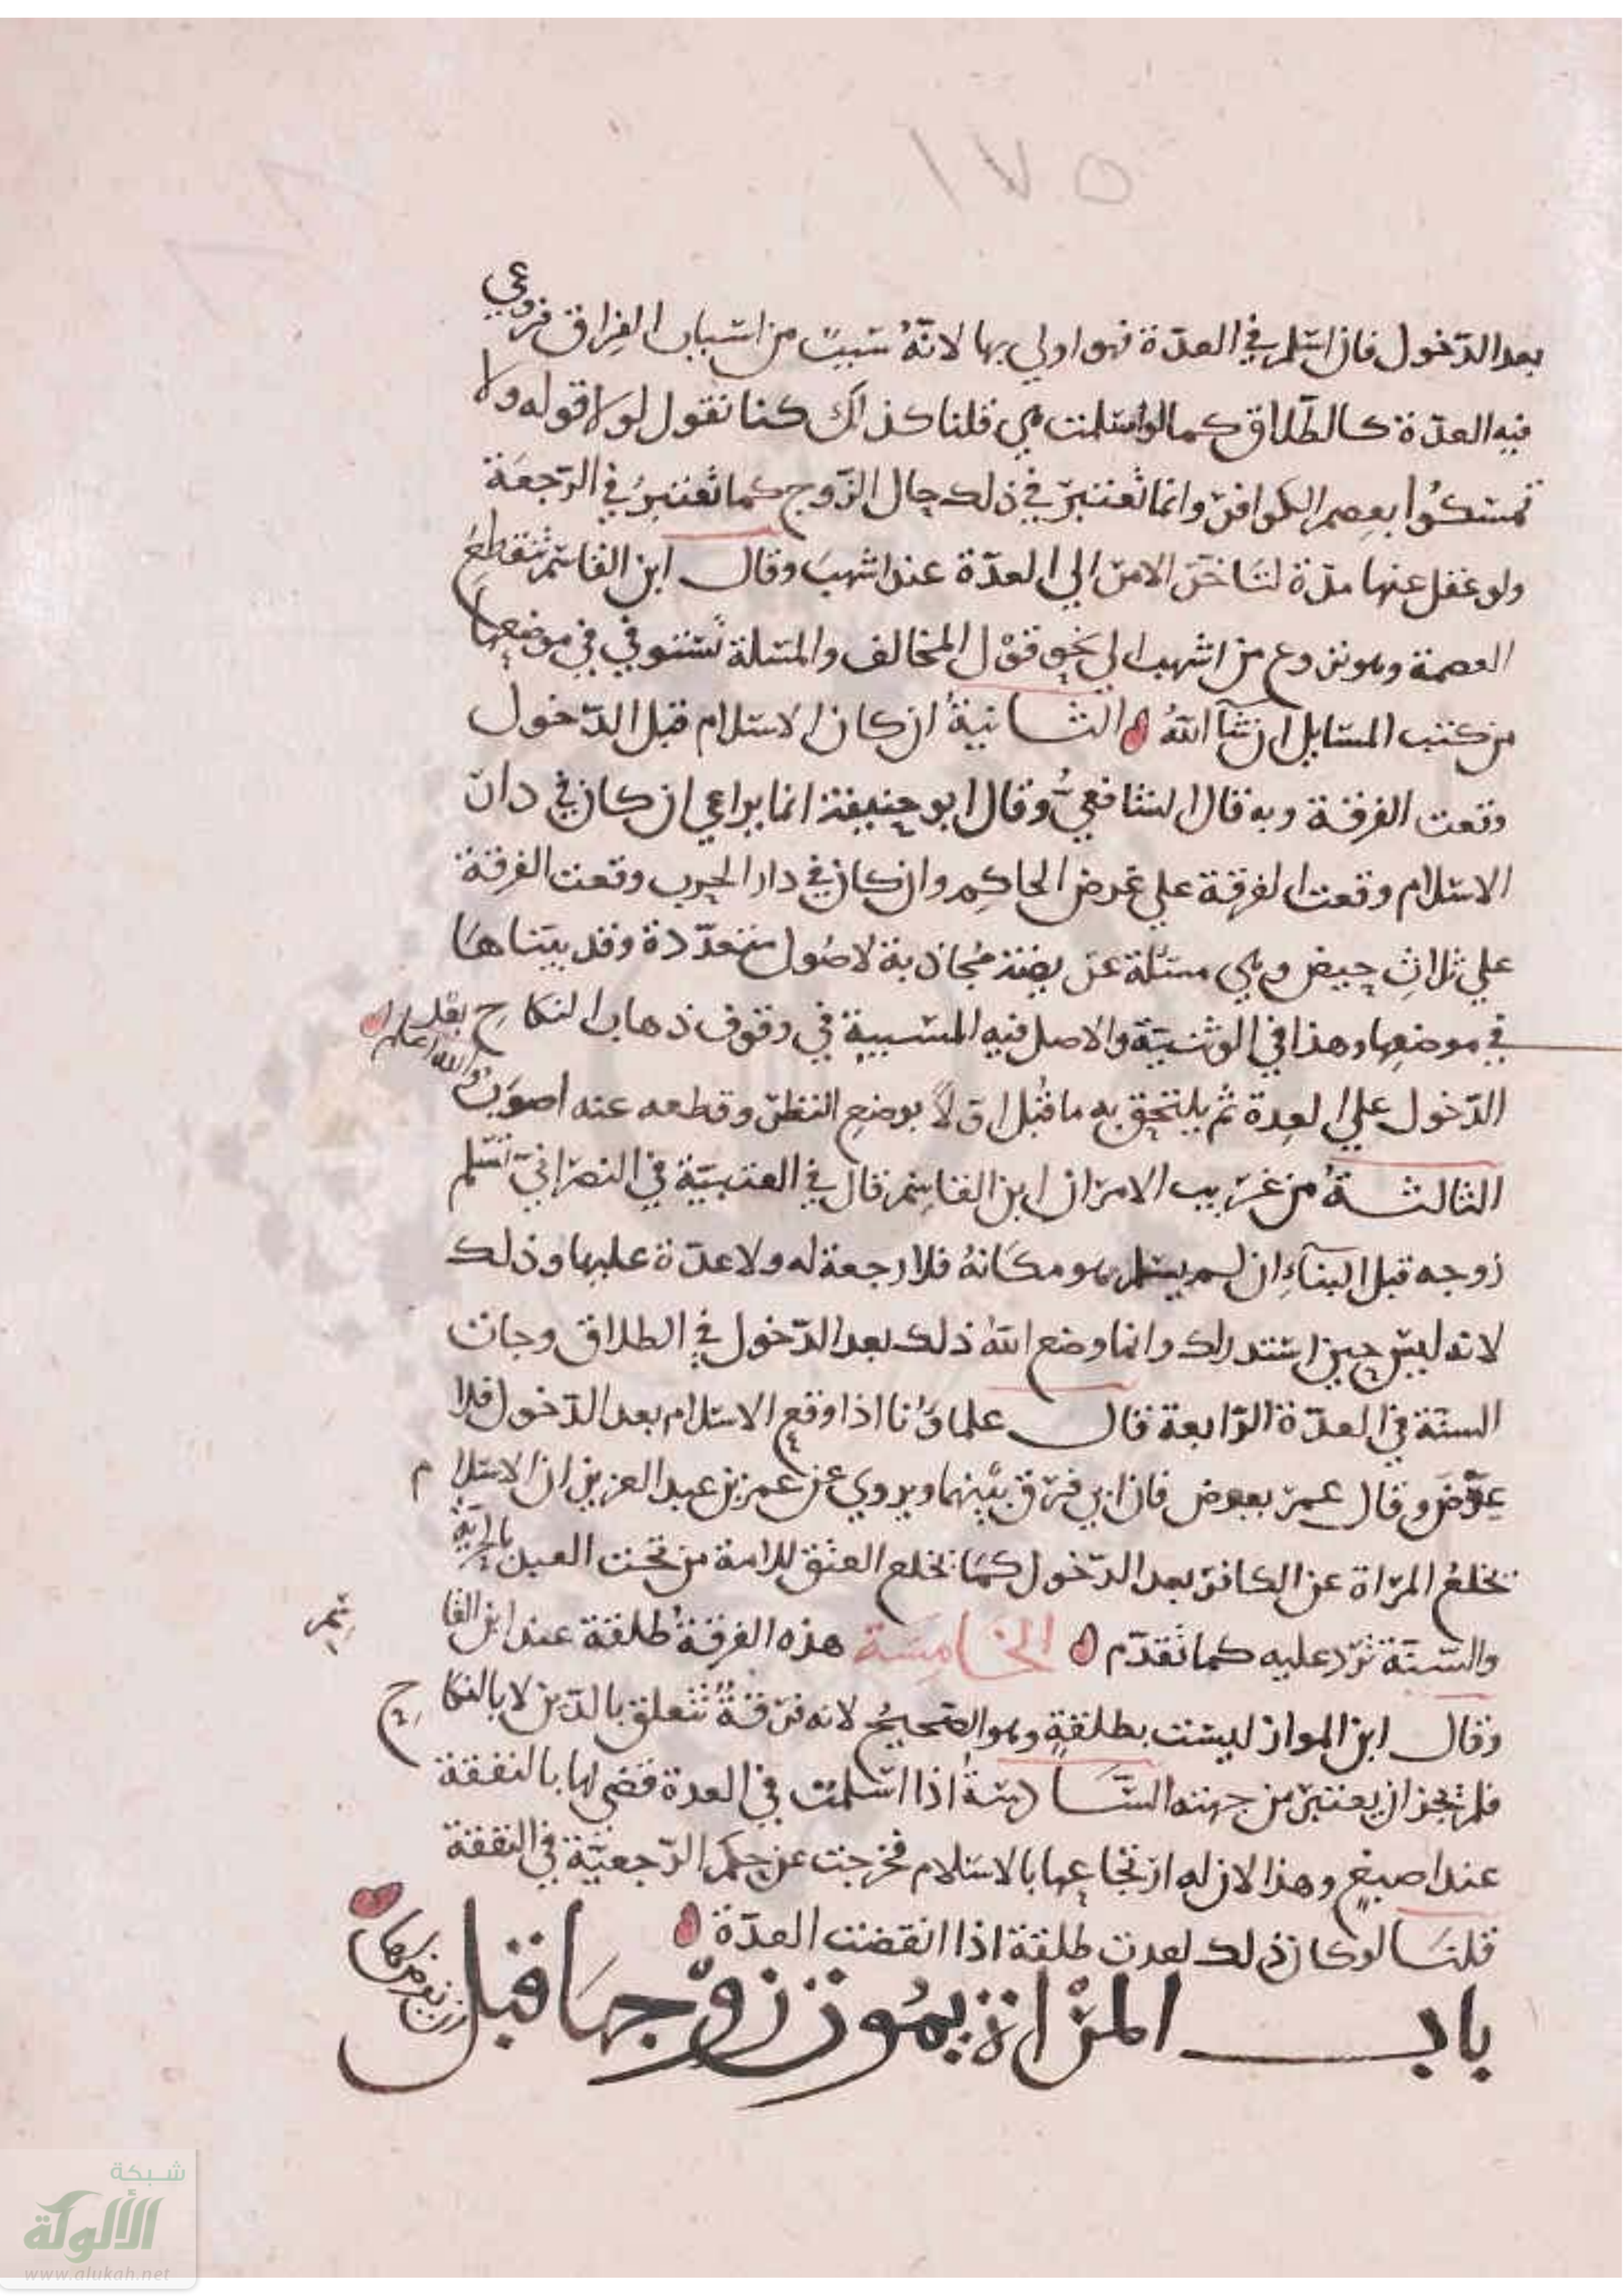 ١٧٥
بعد الدّخول فان اسلم في العدّة فهو اولي بها لانّهُ سَببٌ من اسباب الفِراق فروعي
فيه العدّة كالطّلاق كما لو اسلمت هي قلنا كذلك كنا نقول لولا قوله ولا
تمسكُوا بعصم الكوافر وانما تُعتبر في ذلك حال الزّوج كما تُعتبرُ في الرّجعَة
ولو غفل عنها مدّة لتاخّر الامر الي العدّة عند اشهبَ وقال ابن القاسم تنقطعُ
العصمة وهو نزوع من اشهب الي نحو قوْل المخالف والمسلة تُستوفي في موضعها
من كتب المسايل ان شآ اللهُ الثانيةُ ان كان الاسلام قبل الدّخول
وقعت الفرقة وبه قال الشافعيُّ وقال ابو حنيفة انما يراعي ان كان في دار
الاسلام وقعت الفرقة علي عرض الحاكِم وان كان في دار الحرب وقعت الفرقة
علي ثلاثِ حيض وهي مسئلة عريضة مُجاذبة لاصُول متعدّدة وقد بيّناهَا
في موضعِها وهذا في الوثنيّة والاصل فيه المسبية في وقوف ذهاب النكاحِ بعد
الدّخول علي العدة ثم يلتحق به ما قبل اوّلاً بوضع النظر وقطعه عنه اصوَبُ والله اعلم
الثالثةُ من غريب الامر ان ابن القاسِم قال في العتبيّة في النصرانيّ تسلم
زوجه قبل البنآءِ ان لم يسلم هو مكانهُ فلا رجعة له ولا عدّة عليها وذلك
لانه ليس حين استدراك وانما وضع اللهُ ذلك بعد الدّخول في الطلاق وجات
السنّة في العدّة الرّابعة قال علماؤنا اذا وقع الاسلام بعد الدّخول فلا
عِوَضَ وقال عمر بعوض فان ابي فرّق بيْنهما ويروي عن عمر بن عبد العزيز ان الاسلام
يخلعُ المرْاة عن الكافر بعد الدّخول كما يخلع العتق للامة من تحت العبد بالحرّيّة
والسّنّة تردّ عليه كما تقدّم الخامِسَة هذه الفرقةُ طلقة عند ابن القاسم
وقال ابن المواز ليست بطلقةٍ وهو الصّحيحُ لانه فرقةٌ تتعلق بالدّين لا بالنكاحِ
فلم يجز ان يعتبر من جهته السَّادسَةُ اذا اسلمت في العدة قضي لها بالنفقة
عند اصبغ وهذا لان له ارتجاعها بالاسلام فخرجت عن حكم الرّجعيّة في النفقة
قلنَا لو كان ذلك لعدت طلقة اذا انقضت العدّة
باب المرْاة يمُوت زوْجهَا قبل